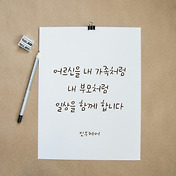 어르신을 내 가족처럼
내 부모처럼
일상을 함께 합니다